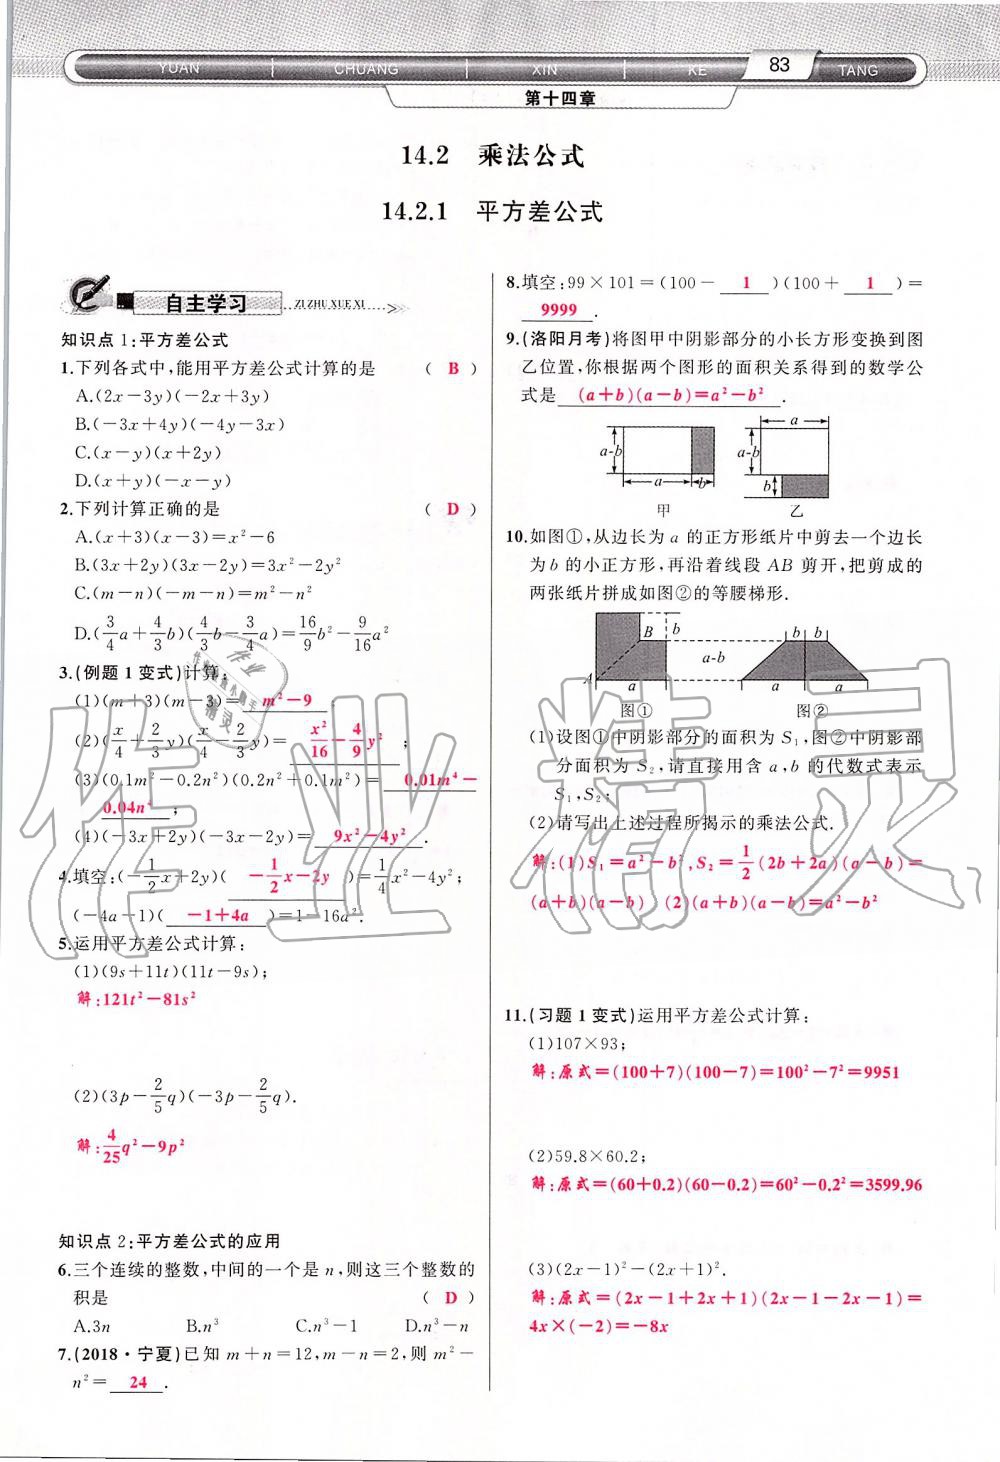 YUAN CHUANG XIN KE 83 TANG
第十四章
14.2 乘法公式
14.2.1 平方差公式
自主学习 ZI ZHU XUE XI
知识点 1:平方差公式
1.下列各式中,能用平方差公式计算的是 ( B )
A.(2x－3y)(－2x＋3y)
B.(－3x＋4y)(－4y－3x)
C.(x－y)(x＋2y)
D.(x＋y)(－x－y)
2.下列计算正确的是 ( D )
A.(x＋3)(x－3)＝x²－6
B.(3x＋2y)(3x－2y)＝3x²－2y²
C.(m－n)(－m－n)＝m²－n²
D.(3/4a＋4/3b)(4/3b－3/4a)＝16/9b²－9/16a²
3.(例题 1 变式)计算:
(1)(m＋3)(m－3)＝ m²－9 ;
(2)(x/4＋2/3y)(x/4－2/3y)＝ x²/16－4/9y² ;
(3)(0.1m²－0.2n²)(0.2n²＋0.1m²)＝ 0.01m⁴－
0.04n⁴ ;
(4)(－3x＋2y)(－3x－2y)＝ 9x²－4y² .
4.填空:(－1/2x＋2y)( －1/2x－2y )＝1/4x²－4y²;
(－4a－1)( －1＋4a )＝1－16a².
5.运用平方差公式计算:
(1)(9s＋11t)(11t－9s);
解:121t²－81s²
(2)(3p－2/5q)(－3p－2/5q).
解:4/25q²－9p²
知识点 2:平方差公式的应用
6.三个连续的整数,中间的一个是 n,则这三个整数的
积是 ( D )
A.3n B.n³ C.n³－1 D.n³－n
7.(2018·宁夏)已知 m＋n＝12,m－n＝2,则 m²－
n²＝ 24 .
8.填空:99×101＝(100－ 1 )(100＋ 1 )＝
9999 .
9.(洛阳月考)将图甲中阴影部分的小长方形变换到图
乙位置,你根据两个图形的面积关系得到的数学公
式是 (a＋b)(a－b)＝a²－b² .
a
a-b a-b
b
a b
甲 乙
10.如图①,从边长为 a 的正方形纸片中剪去一个边长
为 b 的小正方形,再沿着线段 AB 剪开,把剪成的
两张纸片拼成如图②的等腰梯形.
B b b b
a-b
A a a a
图① 图②
(1)设图①中阴影部分的面积为 S₁,图②中阴影部
分面积为 S₂,请直接用含 a,b 的代数式表示
S₁,S₂;
(2)请写出上述过程所揭示的乘法公式.
解:(1)S₁＝a²－b²,S₂＝1/2(2b＋2a)(a－b)＝
(a＋b)(a－b) (2)(a＋b)(a－b)＝a²－b²
11.(习题 1 变式)运用平方差公式计算:
(1)107×93;
解:原式＝(100＋7)(100－7)＝100²－7²＝9951
(2)59.8×60.2;
解:原式＝(60＋0.2)(60－0.2)＝60²－0.2²＝3599.96
(3)(2x－1)²－(2x＋1)².
解:原式＝(2x－1＋2x＋1)(2x－1－2x－1)＝
4x×(－2)＝－8x
作业精灵